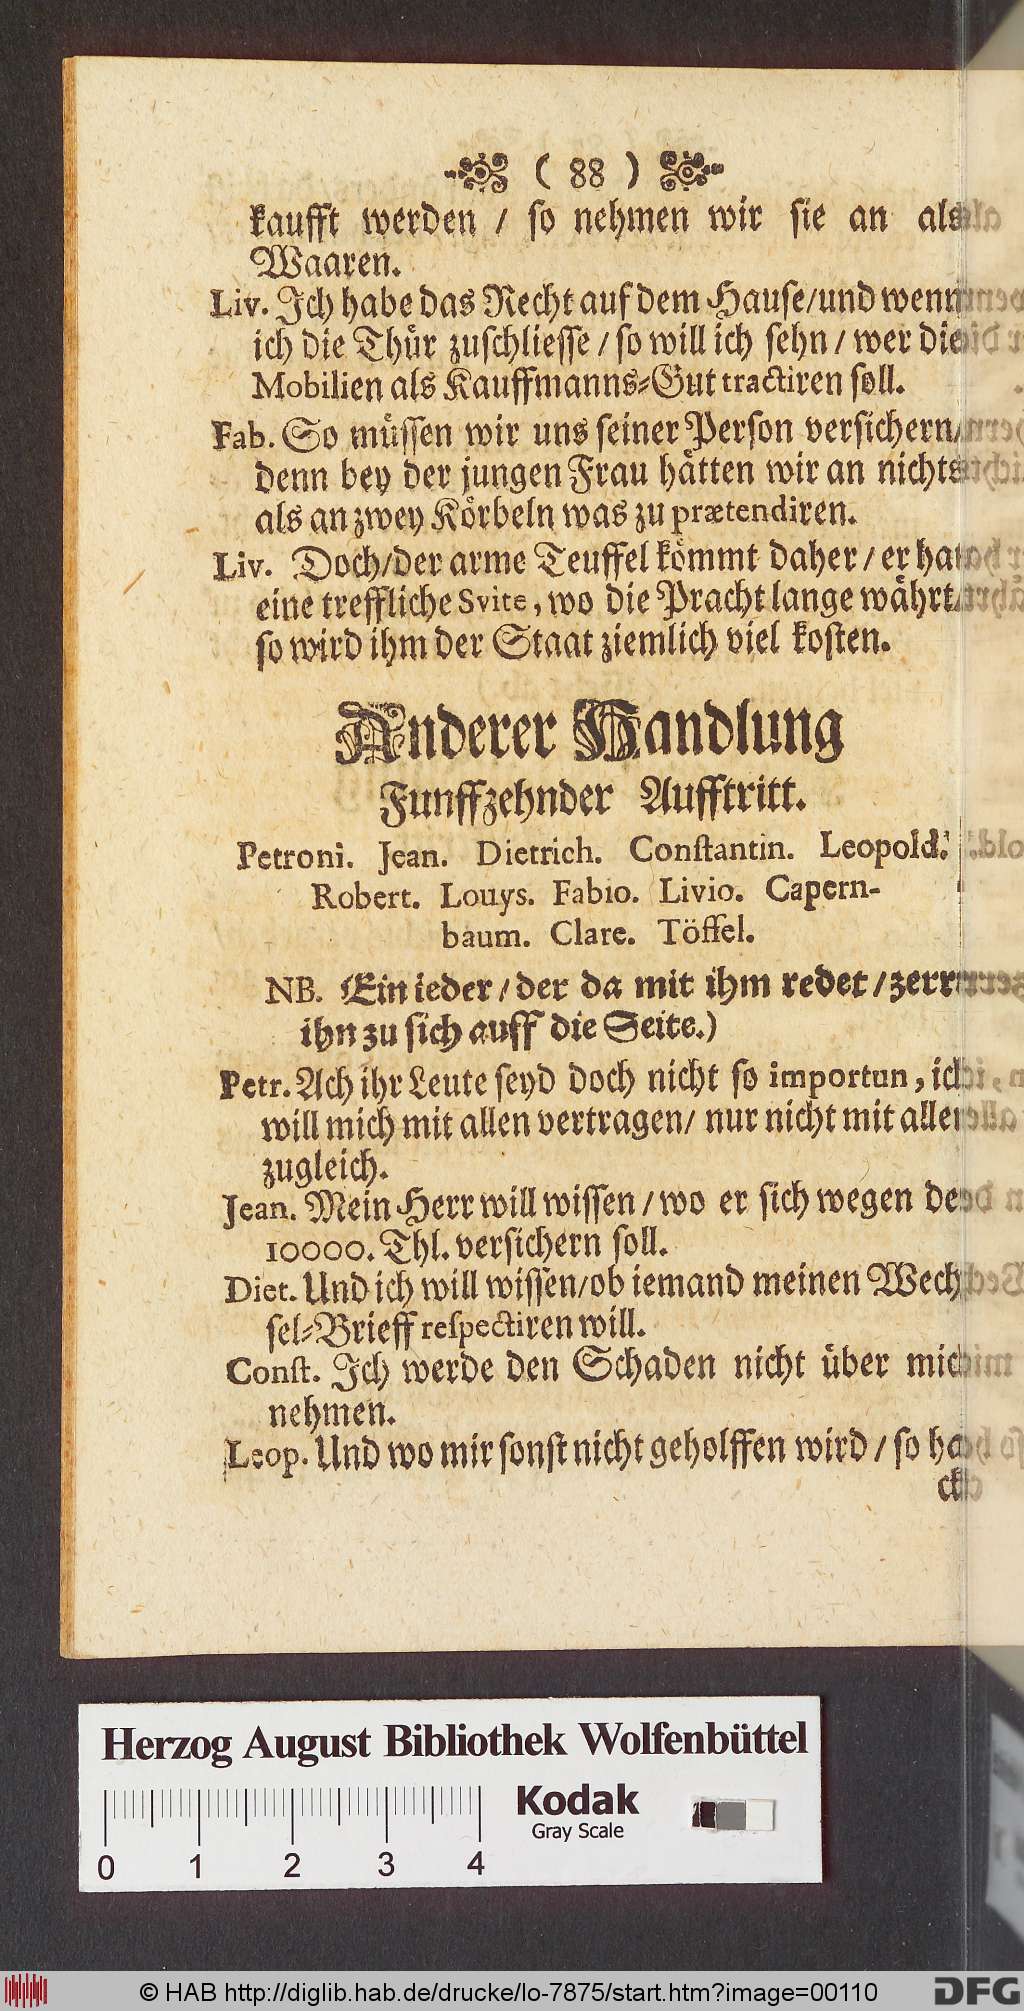 ( 88 )
kaufft werden / so nehmen wir sie an als
Waaren.
Liv. Ich habe das Recht auf dem Hause/und wenn
ich die Thür zuschliesse / so will ich sehn / wer die
Mobilien als Kauffmanns-Gut tractiren soll.
Fab. So müssen wir uns seiner Person versichern/
denn bey der jungen Frau hätten wir an nichts
als an zwey Körbeln was zu prætendiren.
Liv. Doch/der arme Teuffel kömmt daher / er hat
eine treffliche Svite, wo die Pracht lange währt/
so wird ihm der Staat ziemlich viel kosten.
Anderer Handlung
Funffzehnder Aufftritt.
Petroni. Jean. Dietrich. Constantin. Leopold.
Robert. Louys. Fabio. Livio. Capern-
baum. Clare. Töffel.
NB. (Ein ieder / der da mit ihm redet / zerr
ihn zu sich auff die Seite.)
Petr. Ach ihr Leute seyd doch nicht so importun, ich
will mich mit allen vertragen/ nur nicht mit allen
zugleich.
Jean. Mein Herr will wissen / wo er sich wegen der
10000. Thl. versichern soll.
Diet. Und ich will wissen/ob iemand meinen Wech
sel-Brieff respectiren will.
Const. Ich werde den Schaden nicht über mich
nehmen.
Leop. Und wo mir sonst nicht geholffen wird / so ha
Herzog August Bibliothek Wolfenbüttel
Kodak
Gray Scale
0 1 2 3 4
© HAB http://diglib.hab.de/drucke/lo-7875/start.htm?image=00110
DFG